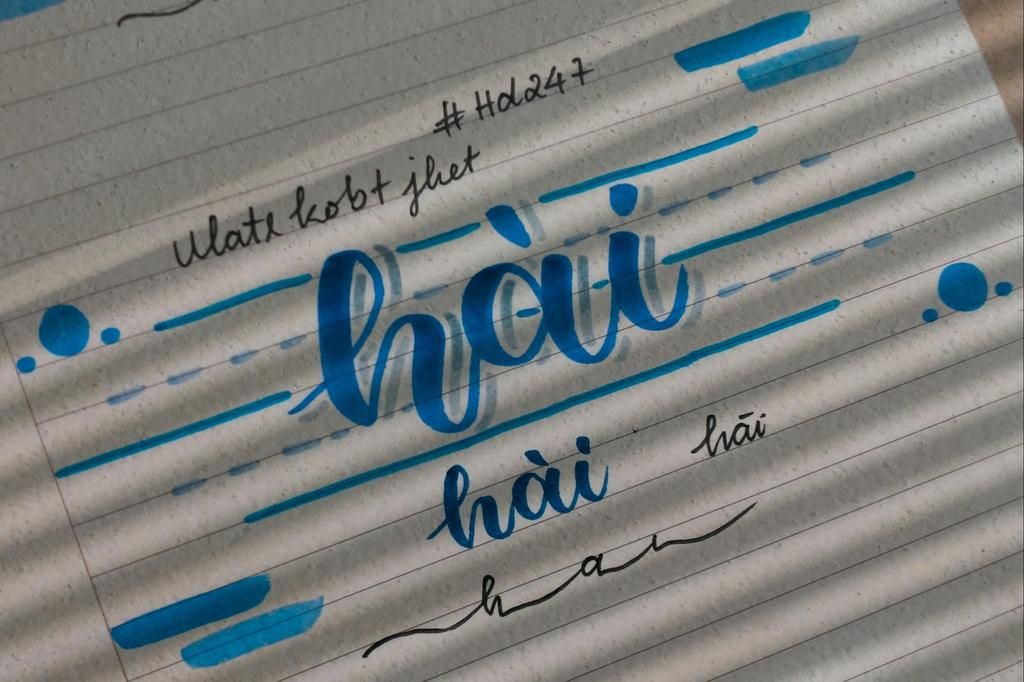 #Hd247
Ulatekobt jhet
hài
hài hāi
han